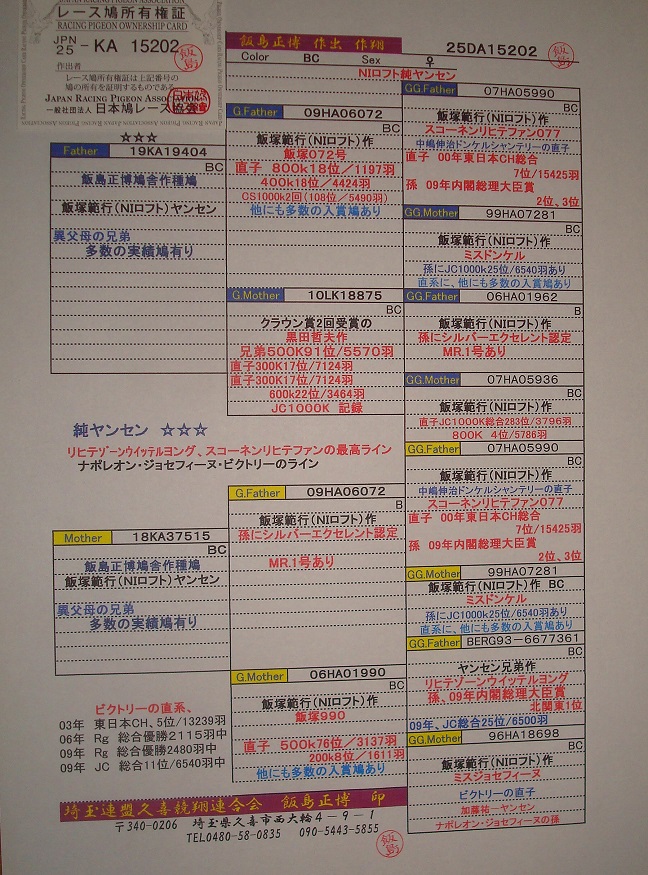 JAPAN RACING PIGEON ASSOCIATION
レース鳩所有権証
RACING PIGEON OWNERSHIP CARD
JPN
25 - KA 15202
作出者
レース鳩所有権証は上記番号の
鳩の所有を証明するものである。
JAPAN RACING PIGEON ASSOCIATION
一般社団法人 日本鳩レース協会
飯島
飯島正博 作出 作翔
25DA15202
飯島
Color BC Sex ♀
NIロフト純ヤンセン
☆☆☆
Father 19KA19404
BC
飯島正博鳩舎作種鳩
飯塚範行(NIロフト)ヤンセン
異父母の兄弟
多数の実績鳩有り
G.Father 09HA06072
BC
飯塚範行(NIロフト)作
飯塚072号
直子 800k18位/1197羽
400k18位/4424羽
CS1000k2回(108位/5490羽)
他にも多数の入賞鳩あり
G.Mother 10LK18875
BC
クラウン賞2回受賞の
黒田哲夫作
兄弟500K91位/5570羽
直子300K17位/7124羽
直子300K17位/7124羽
600k22位/3464羽
JC1000K 記録
GG.Father 07HA05990
BC
飯塚範行(NIロフト)作
スコーネンリヒテファン077
中嶋伸治ドンケルシャンテリーの直子
直子 00年東日本CH総合
7位/15425羽
孫 09年内閣総理大臣賞
2位、3位
GG.Mother 99HA07281
BC
飯塚範行(NIロフト)作
ミスドンケル
孫にJC1000k25位/6540羽あり
直系に、他にも多数の入賞鳩あり
GG.Father 06HA01962
B
飯塚範行(NIロフト)作
孫にシルバーエクセレント認定
MR.1号あり
GG.Mother 07HA05936
BC
飯塚範行(NIロフト)作
直子JC1000K総合283位/3796羽
800K 4位/5786羽
純ヤンセン ☆☆☆
リヒテゾーンウイッテルヨング、スコーネンリヒテファンの最高ライン
ナポレオン・ジョセフィーヌ・ビクトリーのライン
Mother 18KA37515
BC
飯島正博鳩舎作種鳩
飯塚範行(NIロフト)ヤンセン
異父母の兄弟
多数の実績鳩有り
G.Father 09HA06072
B
飯塚範行(NIロフト)作
孫にシルバーエクセレント認定
MR.1号あり
G.Mother 06HA01990
BC
飯塚範行(NIロフト)作
飯塚990
直子 500k76位/3137羽
200k8位/1611羽
他にも多数の入賞鳩あり
GG.Father 07HA05990
BC
飯塚範行(NIロフト)作
中嶋伸治ドンケルシャンテリーの直子
スコーネンリヒテファン077
直子 00年東日本CH総合
7位/15425羽
孫 09年内閣総理大臣賞
2位、3位
GG.Mother 99HA07281
飯塚範行(NIロフト)作 BC
ミスドンケル
孫にJC1000k25位/6540羽あり
直系に、他にも多数の入賞鳩あり
GG.Father BERG93-6677361
BC
ヤンセン兄弟作
リヒテゾーンウイッテルヨング
孫、09年内閣総理大臣賞
北関東1位
09年、JC総合25位/6500羽
GG.Mother 96HA18698
BC
飯塚範行(NIロフト)作
ミスジョセフィーヌ
ビクトリーの直子
加藤祐一ヤンセン
ナポレオン・ジョセフィーヌの孫
ビクトリーの直系、
03年 東日本CH、5位/13239羽
06年 Rg 総合優勝2115羽中
09年 Rg 総合優勝2480羽中
09年 JC 総合11位/6540羽中
埼玉連盟久喜競翔連合会 飯島正博 印
〒340-0206 埼玉県久喜市西大輪4-9-1
TEL0480-58-0835 090-5443-5855
飯島